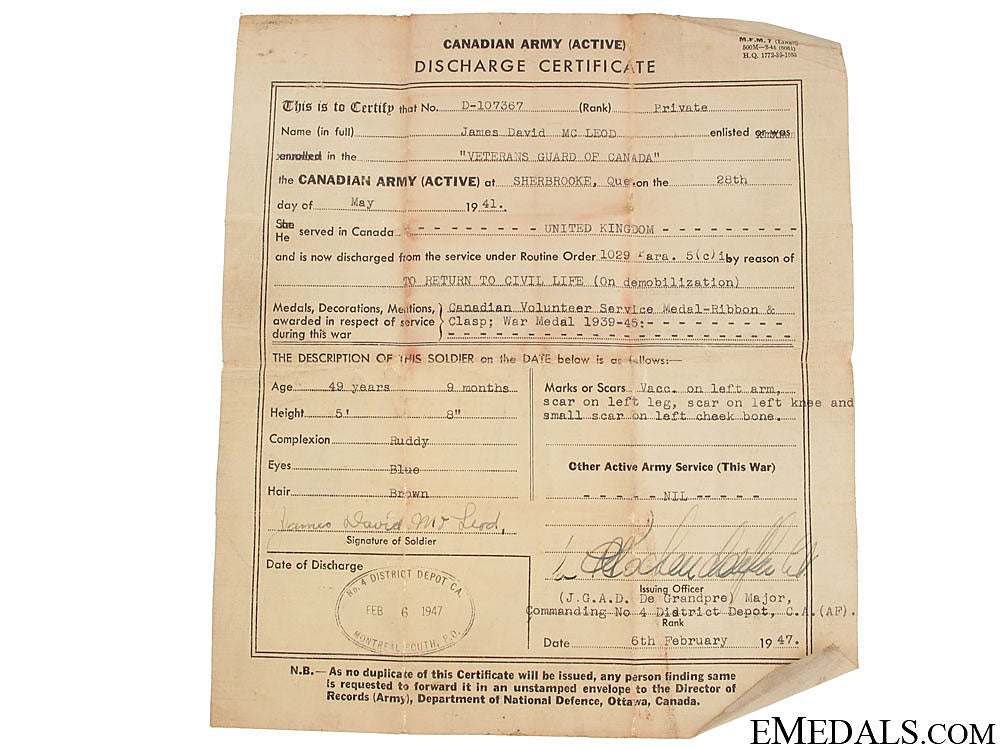 CANADIAN ARMY (ACTIVE)
DISCHARGE CERTIFICATE
M.F.M. 7
500M—2-45
H.Q. 1772-39-1083
This is to Certify that No. D-107367 (Rank) Private
Name (in full) James David MC LEOD enlisted or was
enrolled in the "VETERANS GUARD OF CANADA"
the CANADIAN ARMY (ACTIVE) at SHERBROOKE, Que. on the 28th
day of May 19 41.
She
He served in Canada - - - - - - - - UNITED KINGDOM - - - - - - - - -
and is now discharged from the service under Routine Order 1029 Para. 5(c)i by reason of
TO RETURN TO CIVIL LIFE (On demobilization)
Medals, Decorations, Mentions, Canadian Volunteer Service Medal-Ribbon &
awarded in respect of service Clasp; War Medal 1939-45:- - - - - - - - - -
during this war - - - - - - - - - - - - - - - - - - - -
THE DESCRIPTION OF THIS SOLDIER on the DATE below is as follows:—
Age 49 years 9 months
Height 5' 8"
Complexion Ruddy
Eyes Blue
Hair Brown
James David Mc Leod,
Signature of Soldier
Marks or Scars Vacc. on left arm,
scar on left leg, scar on left knee and
small scar on left cheek bone.
Other Active Army Service (This War)
- - - - - NIL - - - - -
Issuing Officer
(J.G.A.D. De Grandpre) Major,
Commanding No 4 District Depot, C.A.(AF).
Rank
Date 6th February 19 47.
Date of Discharge
No. 4 DISTRICT DEPOT C.A.
FEB 6 1947
MONTREAL SOUTH, P.Q.
N.B.— As no duplicate of this Certificate will be issued, any person finding same
is requested to forward it in an unstamped envelope to the Director of
Records (Army), Department of National Defence, Ottawa, Canada.
EMEDALS.COM